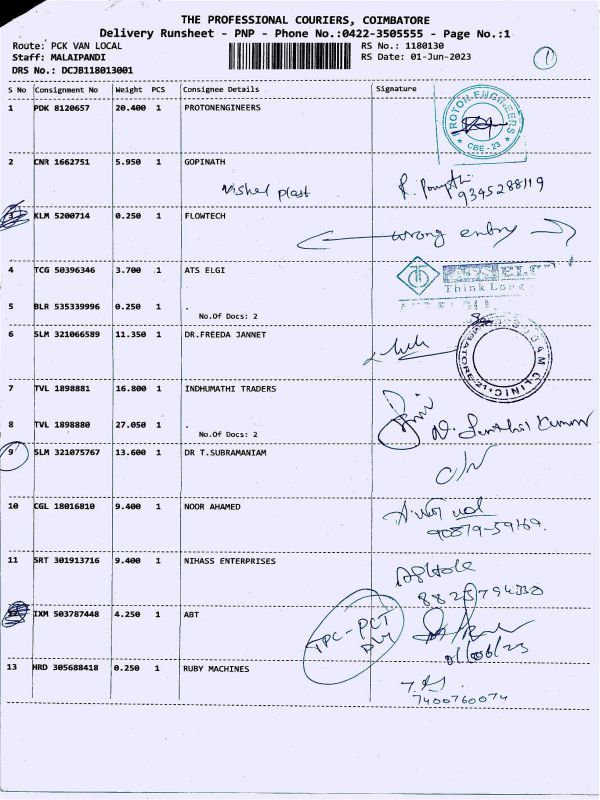 THE PROFESSIONAL COURIERS, COIMBATORE
Delivery Runsheet - PNP - Phone No.:0422-3505555 - Page No.:1
Route: PCK VAN LOCAL RS No.: 1180130
Staff: MALAIPANDI RS Date: 01-Jun-2023 1
DRS No.: DCJB118013001
S No Consignment No Weight PCS Consignee Details Signature
1 PDK 8120657 20.400 1 PROTONENGINEERS
PROTON ENGINEERS
★ CBE - 23 ★
2 CNR 1662751 5.950 1 GOPINATH
Vishal plast 9345288119
3 KLM 5200714 0.250 1 FLOWTECH
wrong entry
4 TCG 50396346 3.700 1 ATS ELGI
ATS ELGI
Think Long
5 BLR 535339996 0.250 1 .
No.Of Docs: 2
6 SLM 321066589 11.350 1 DR.FREEDA JANNET
CLINIC
7 TVL 1898881 16.800 1 INDHUMATHI TRADERS
8 TVL 1898880 27.050 1 .
No.Of Docs: 2
9 SLM 321075767 13.600 1 DR T.SUBRAMANIAM
10 CGL 18016810 9.400 1 NOOR AHAMED
90879-59169.
11 SRT 301913716 9.400 1 NIHASS ENTERPRISES
IXM 503787448 4.250 1 ABT
TPC-PCT
01/06/23
13 HRD 305688418 0.250 1 RUBY MACHINES
7400760074